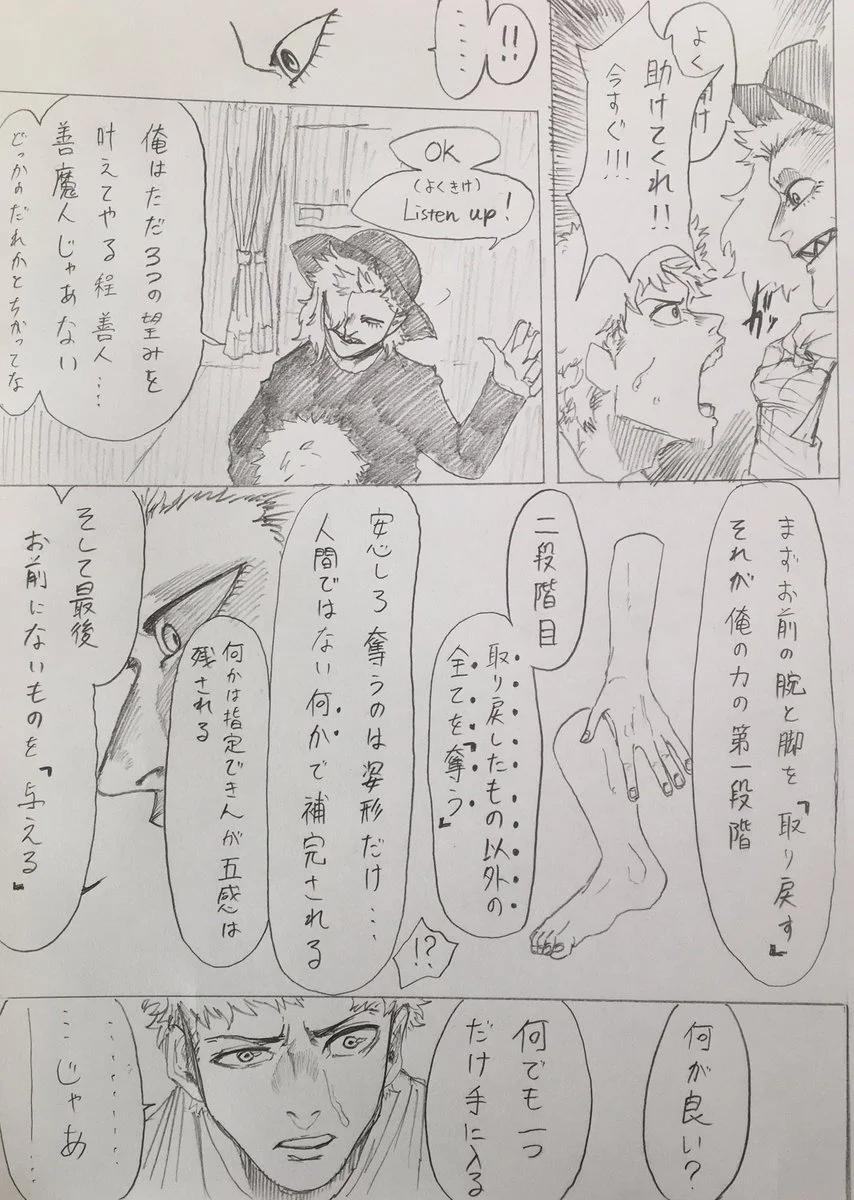 よく
助けてくれ!!
今すぐ!!!
ガッ
!!
……
OK
(よくきけ)
Listen up!
俺はただ3つの望みを
叶えてやる程善人…
善魔人じゃあない
どっかのだれかとちがってな
まずお前の腕と脚を『取り戻す』
それが俺の力の第一段階
二段階目
取り戻したもの以外の
全てを『奪う』
安心しろ 奪うのは姿形だけ…
人間ではない何かで補完される
何かは指定できんが五感は
残される
そして最後
お前にないものを『与える』
!?
何が良い?
何でも一つ
だけ手に入る
………
…じゃあ
―…